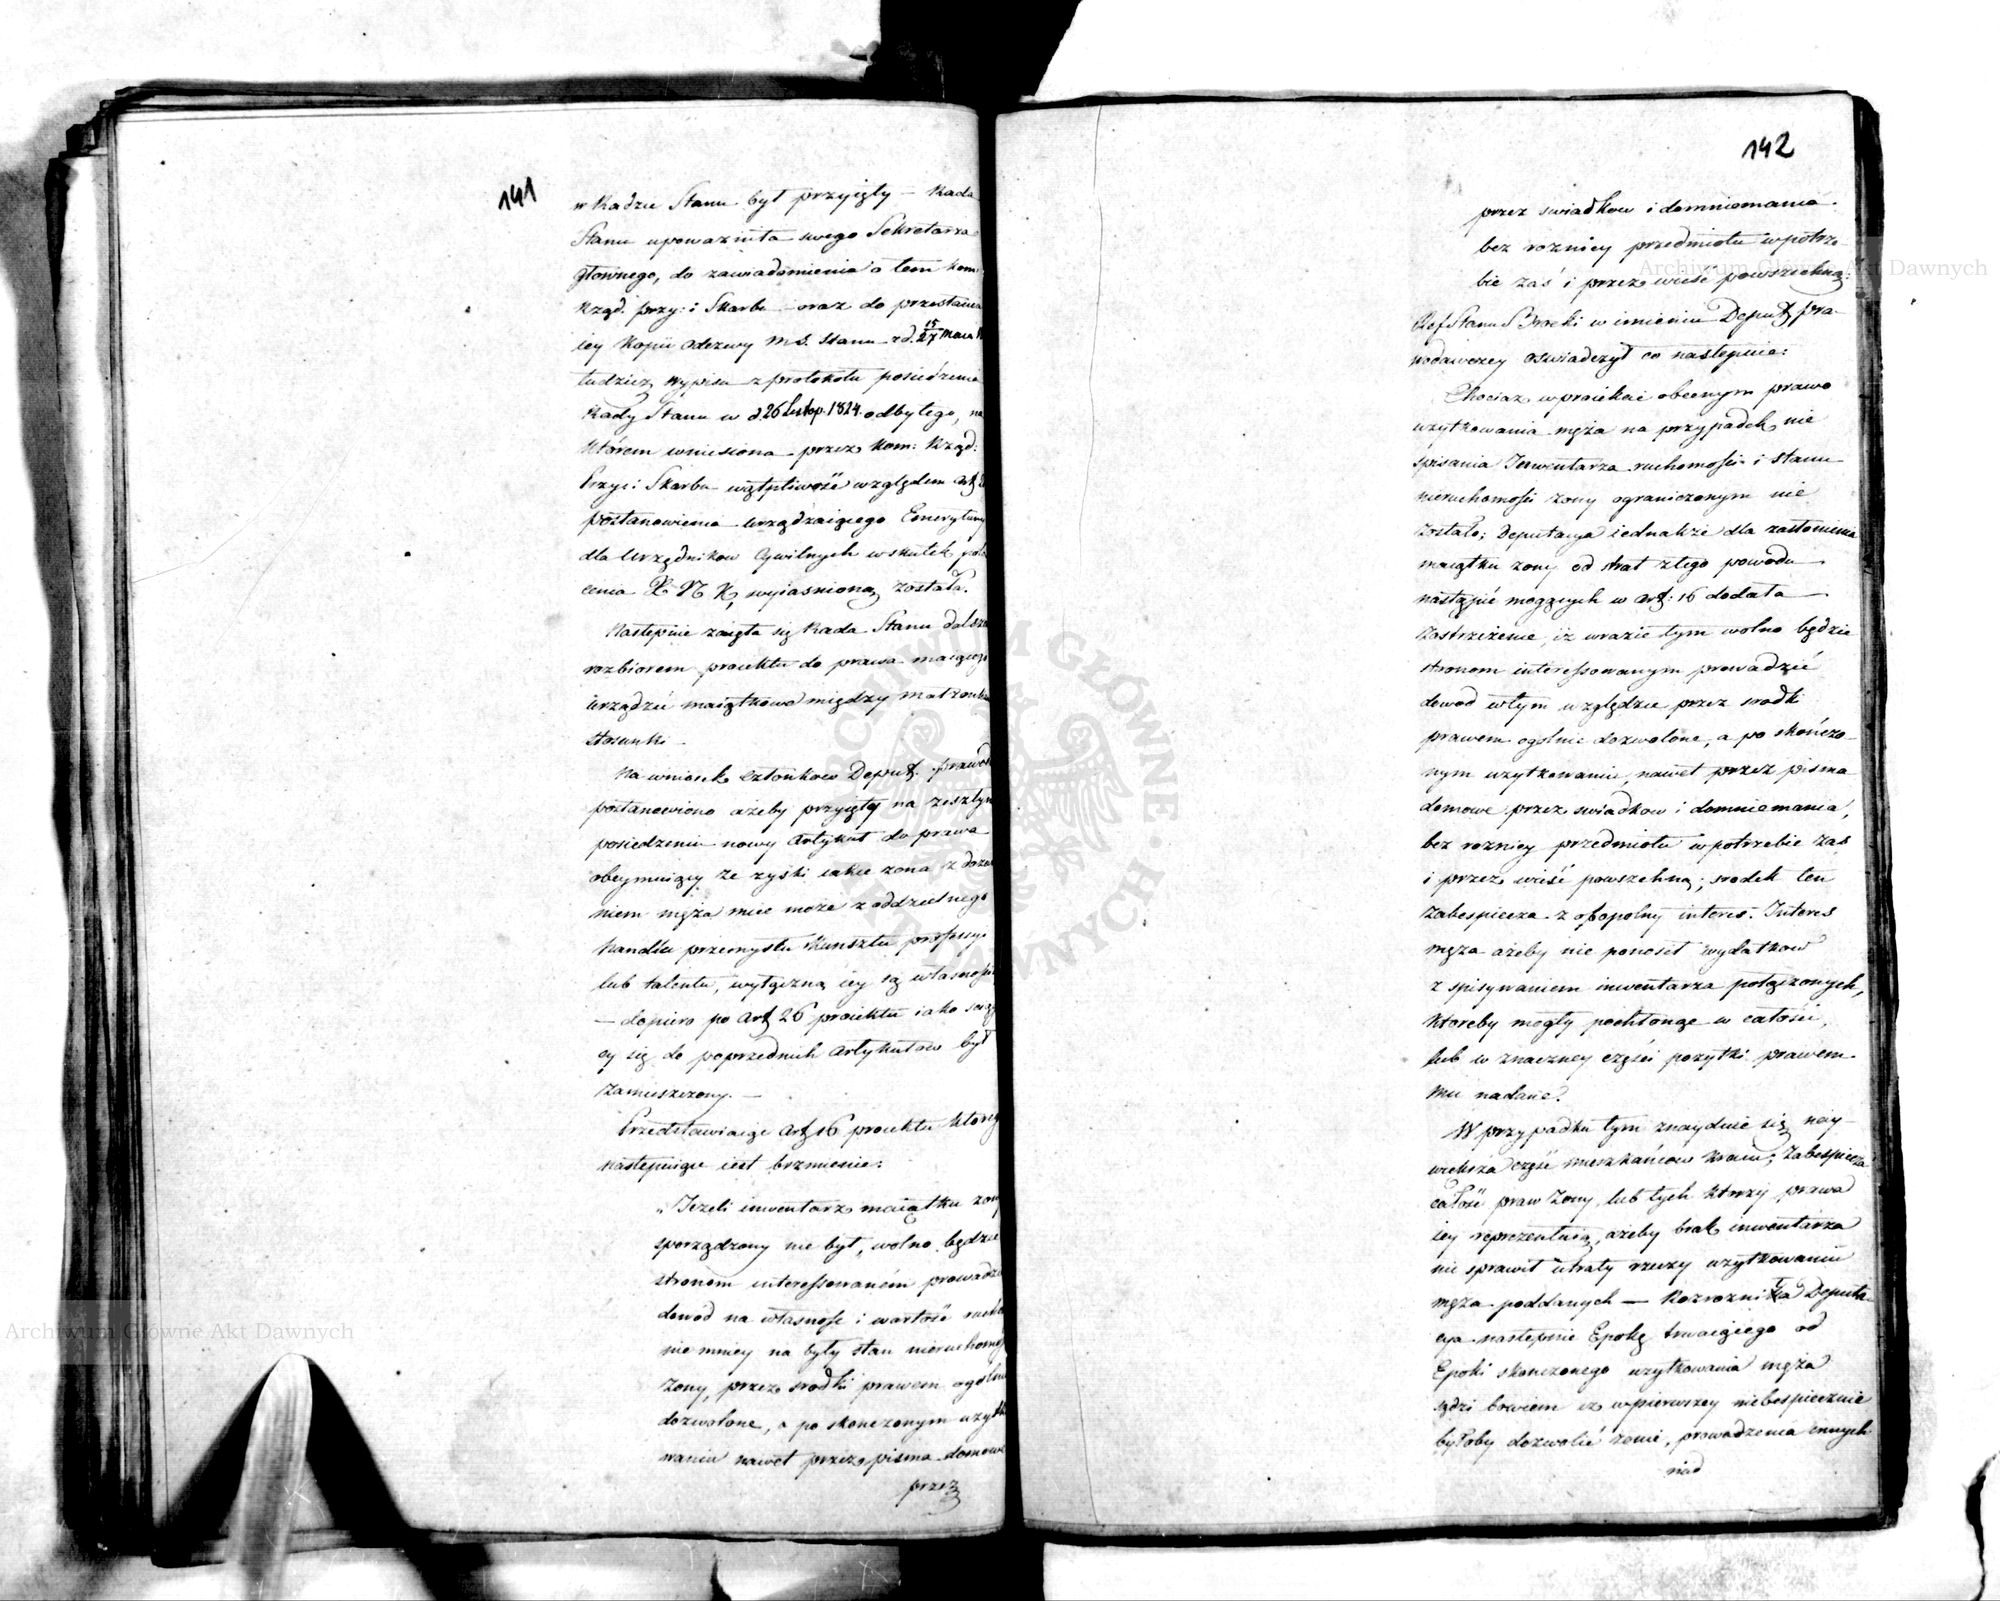 141
w Radzie Stanu był przyięty — Rada
Stanu upoważniła swego Sekretarza
głównego, do zawiadomienia o tem Kom:
Rząd. przy: i Skarbu — oraz do przesłania
iey Kopii Odezwy M. S. Stanu z d. 15/27 Marca
tudzież Wypisu z protokołu posiedzenia
Rady Stanu w d. 26 Listop. 1824. odbytego, na
którem wniesiona przez Kom: Rząd:
Przy: i Skarbu wątpliwość względem art
postanowienia urządzaiącego Emerytury
dla Urzędników Cywilnych wskutek pole
cenia X N K, wyiaśnioną została.
Następnie zaięła się Rada Stanu dalszem
rozbiorem proiektu do prawa maiącego
urządzić maiątkowe między małżonkami
stosunki —
Na wniosek Członków Deput. prawod
postanowiono ażeby przyięty na zeszłym
posiedzeniu nowy Artykuł do prawa
obeymuiący że zyski iakie żona z dozwo
niem męża mieć może z oddzielnego
handlu przemysłu kunsztu professyi
lub talentu, wyłączną iey są własnością
— dopiero po Art 26 proiektu iako
cy się do poprzednich Artykułów był
zamieszczony. —
Przedstawiaiąc Art 16 proiektu który
następuiące iest brzmienie:
„Jeżeli inwentarz maiątku żony
sporządzony nie był, wolno będzie
stronom interessowaném prowadzić
dowód na własność i wartość
niemniey na były stan nieruchomości
Żony, przez środki prawem ogólnie
dozwolone, a po skończonym użytko
waniu nawet przez pisma domowe
przez
142
przez świadków i domniemania.
bez różnicy przedmiotu w potrze
bie zaś i przez wieść powszechną:
Ref Stanu Brocki w imieniu Deput pra-
wodawczey oświadczył co następuie:
Chociaż w proiekcie obecnym prawo
użytkowania męża na przypadek nie
spisania Inwentarza ruchomości i stanu
nieruchomości żony ograniczonym nie
zostało; Deputacya iednakże dla zasłonienia
maiątku żony od strat z tego powodu
nastąpić mogących w art: 16 dodała —
Zastrzeżenie, iż w razie tym wolno będzie
stronom interessowanym prowadzić
dowód w tym względzie przez środki
prawem ogólnie dozwolone, a po skończo-
nym użytkowaniu nawet przez pisma
domowe przez świadków i domniemania,
bez różnicy przedmiotu w potrzebie zaś
i przez wieść powszechną; środek ten
zabespiecza z obopolny interes. Interes
męża ażeby nie ponosił wydatków
z spisywaniem inwentarza połączonych,
któreby mogły pochłonąć w całości,
lub w znaczney części pożytki prawem
mu nadane.
W przypadku tym znayduie się nay-
większa część mieszkańców Kraiu; Zabespiecza
całość praw Żony, lub tych którzy prawa
iey reprezentuią, ażeby brak inwentarza
nie sprawił utraty rzeczy użytkowaniu
męża poddanych — Rozróżniła Deputa-
cya następnie Epokę trwaiącego od
Epoki skończonego użytkowania męża
sądzi bowiem iż w pierwszey niebespiecznie
byłoby dozwolić żonie, prowadzenia innych
nad
Archiwum Główne Akt Dawnych
Archiwum Główne Akt Dawnych
ARCHIWUM GŁÓWNE AKT DAWNYCH